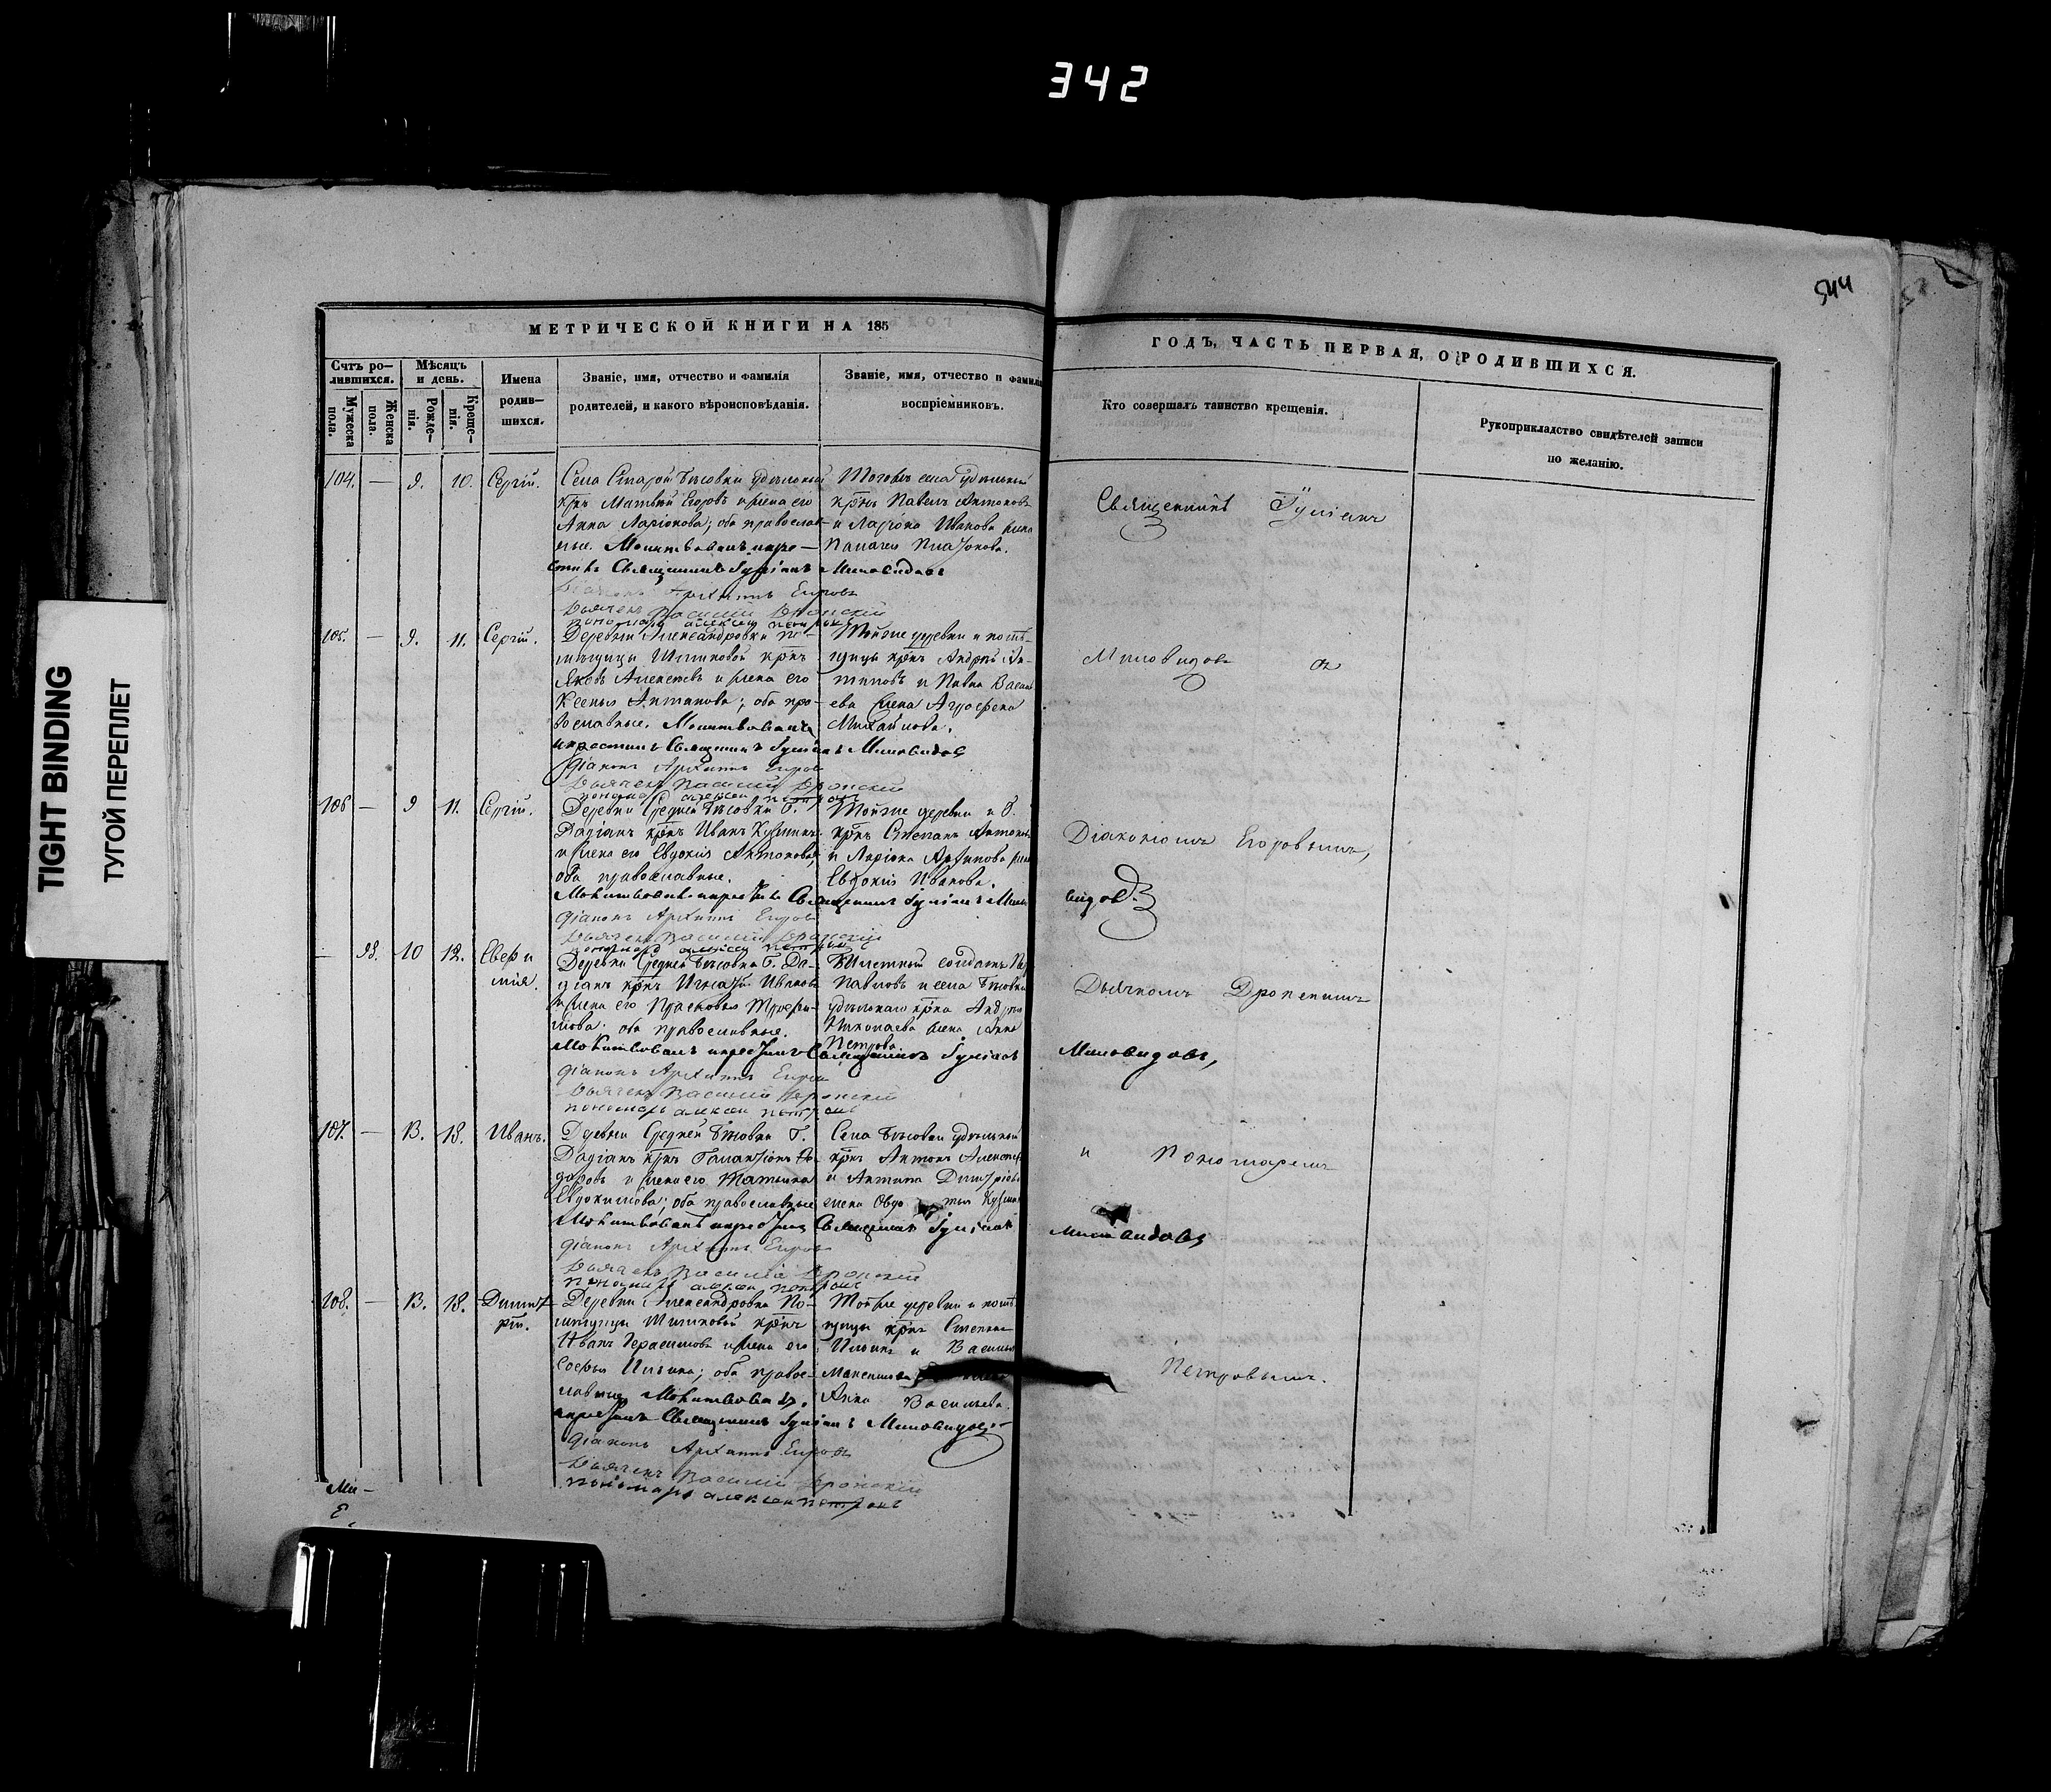 342
544
TIGHT BINDING
ТУГОЙ ПЕРЕПЛЕТ
МЕТРИЧЕСКОЙ КНИГИ НА 185
ГОДЪ, ЧАСТЬ ПЕРВАЯ, О РОДИВШИХСЯ.
Счтъ ро–
дившихся.
Мужеска пола.
Женска пола.
Мѣсяцъ
и день.
Рожде–
нія.
Креще–
нія.
Имена
родив–
шихся.
Званіе, имя, отчество и фамилія
родителей, и какого вѣроисповѣданія.
Званіе, имя, отчество и фамилія
воспріемниковъ.
Кто совершалъ таинство крещенія.
Рукоприкладство свидѣтелей записи
по желанію.
104. — 9. 10. Сергій.
Села Старой Бѣсовки удѣльной
крнъ Матвѣй Егоровъ и жена его
Анна Ларіонова; оба православ–
ные. Молитвовалъ и кре–
стилъ Священникъ Іуліанъ Миловидовъ
Діаконъ Архиппъ Егоровъ
Дьячекъ Василій
Пономарь Алексѣй Петровъ
Тогожъ села удѣльный
крнъ Павелъ Антоновъ
и Ларіона Иванова жена
Пелагея Платонова.
Священникъ Іуліанъ
105. — 9. 11. Сергій.
Деревни Александровки по–
мѣщицы крнъ
Яковъ Алексѣевъ и жена его
Ксенья Антипова; оба пра–
вославные. Молитвовалъ
и крестилъ Священникъ Іуліанъ Миловидовъ
Діаконъ Архиппъ Егоровъ
Дьячекъ Василій
Пономарь Алексѣй Петровъ
Тойже деревни и помѣ–
щицы крнъ Андрей Ан–
типовъ и Павла Василь
ева жена Агрофена
Михайлова.
Миловидовъ съ
106 — 9 11. Сергій.
Деревни Средней Бѣсовки Г.
Дадіанъ крнъ Иванъ Кузминъ
и жена его Евдокія Антонова;
оба православные.
Молитвовалъ и крестилъ Священникъ Іуліанъ Мило
Діаконъ Архиппъ Егоровъ
Дьячекъ Василій
Пономарь Алексѣй Петровъ
Тойже деревни и Г.
крнъ Степанъ Антоновъ
и Ларіона Архипова жена
Евдокія Иванова.
Діакономъ Егоровымъ,
видовъ
— 98. 10 12. Евфи
мія.
Деревни Средней Бѣсовки Г. Да–
діанъ крнъ Игнатій Ивановъ
и жена его Прасковья Трофи–
мова. оба православные.
Молитвовалъ и крестилъ Священникъ Іуліанъ
Діаконъ Архиппъ Егоровъ
Дьячекъ Василій
Пономарь Алексѣй Петровъ
Билетный солдатъ
Павловъ и села Бѣсовки
удѣльнаго крна Андрея
Николаева жена Анна
Петрова.
Дьячкомъ
Миловидовъ,
107. — 13. 18. Иванъ.
Деревни Средней Бѣсовки Г.
Дадіанъ крнъ Галактіонъ Ѳе–
доровъ и жена его Татьяна
Евдокимова; оба православные
Молитвовалъ и крестилъ Священникъ Іуліанъ
Діаконъ Архиппъ Егоровъ
Дьячекъ Василій
Пономарь Алексѣй Петровъ
Села Бѣсовки удѣльный
крнъ Антонъ Алексѣевъ
и Антипа Димитріева
жена
и Пономаремъ
Миловидовъ
108. — 13. 18. Димит
рій.
Деревни Александровки По–
мѣщицы крнъ
Иванъ Герасимовъ и жена его
Софья Ильина; оба право–
славные Молитвовалъ,
и крестилъ Священникъ Іуліанъ Миловидовъ
Діаконъ Архиппъ Егоровъ
Дьячекъ Василій
Пономарь Алексѣй Петровъ
Тойже деревни и помѣ
щицы крнъ Степанъ
Ильинъ и Василья
Анна Васильева.
Петровымъ.
Ми–